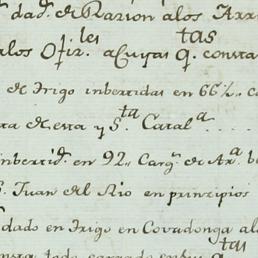 dad.s de Razion a los Arr
a los Ofiz.les a Cuyas q.tas consta
de Trigo inbertidas en 66 2/4 c
ta de esta y S.ta Catal.a ....
inbertid.s en 92 Carg.s de
S. Juan del Rio en principios
dado en Trigo en Covadonga a lo